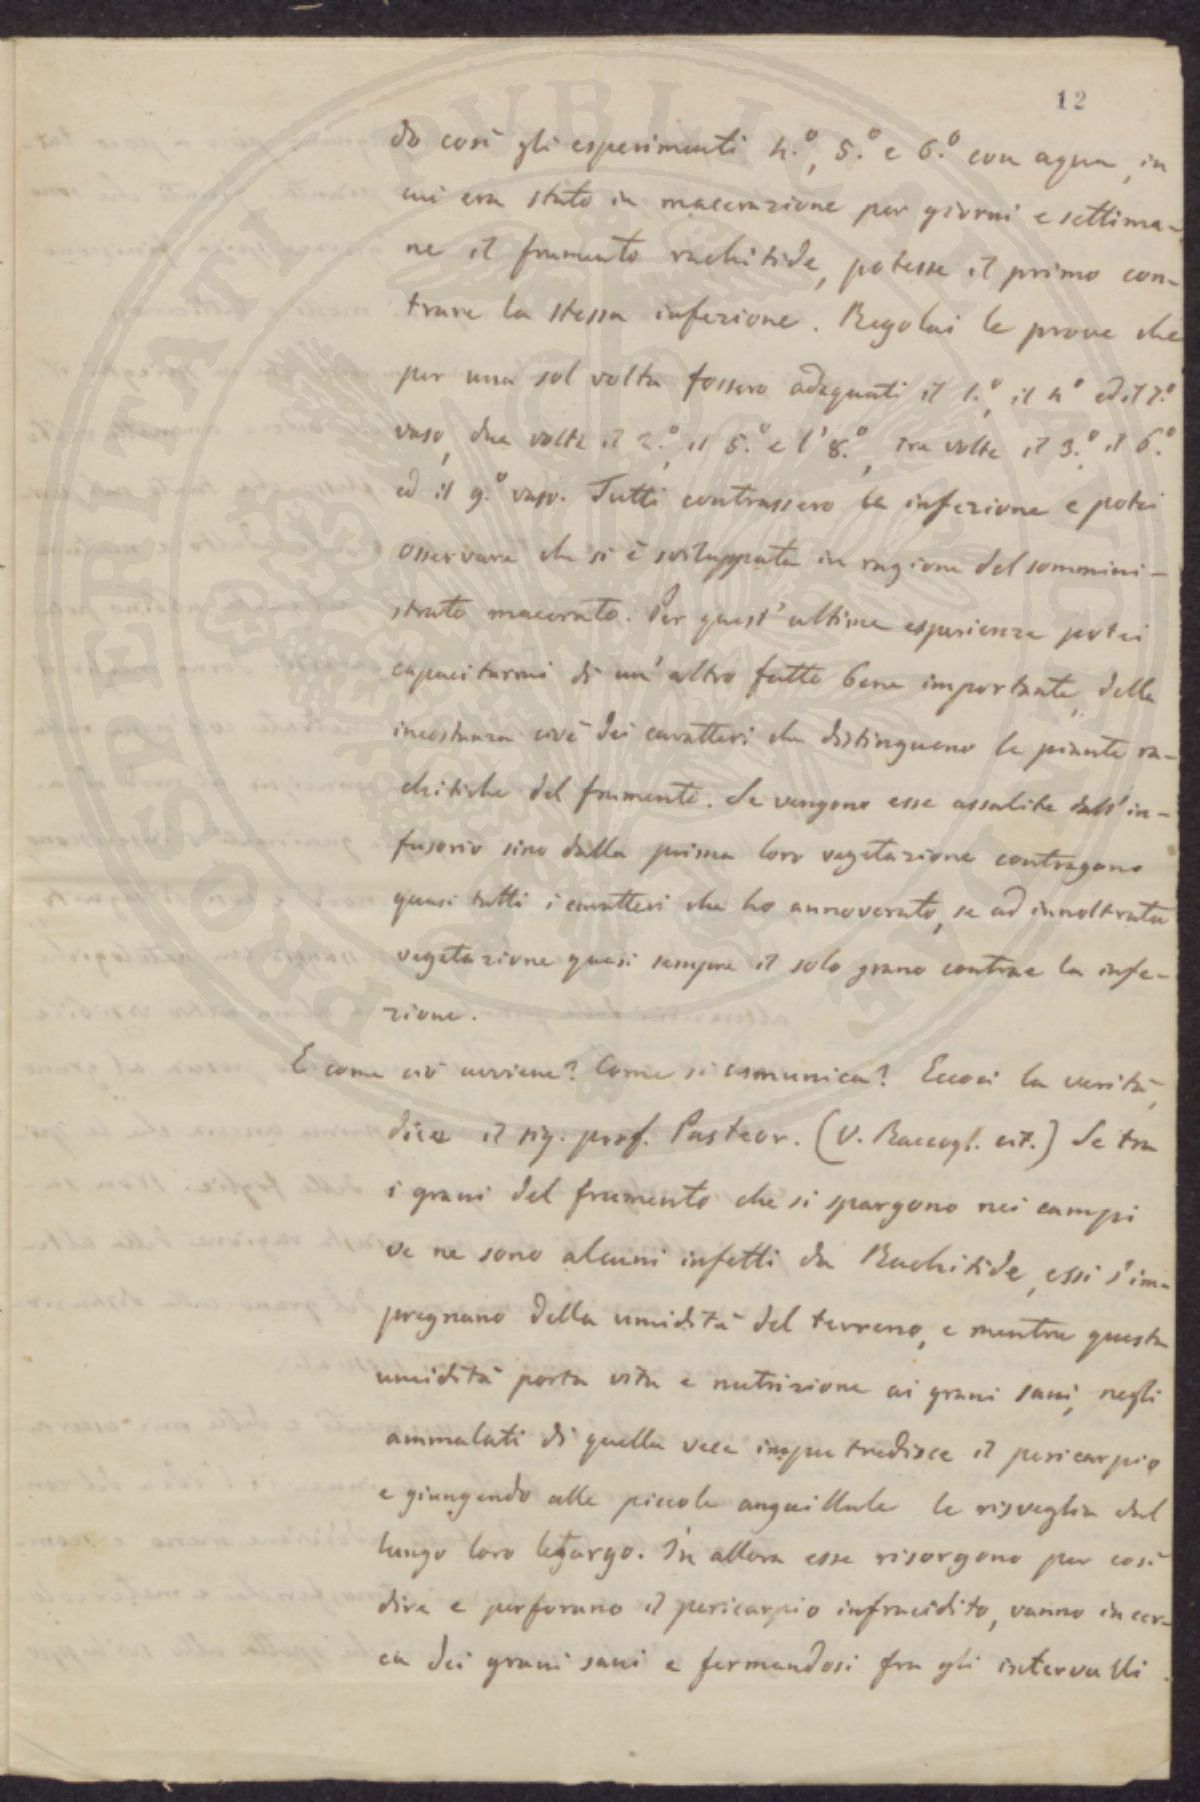 12
do così gli esperimenti 4.º, 5.º e 6.º con aqua, in
cui era stato in macerazione per giorni e settima-
ne il frumento rachitide, potesse il primo con-
trare la stessa infezione. Regolai le prove che
per una sol volta fossero adaquati il 1.º, il 4º ed il 7.º
vaso, due volte il 2.º, il 5.º e l'8.º, tre volte il 3.º, il 6.º
ed il 9.º vaso. Tutti contrassero la infezione e potei
osservare che si è sviluppata in ragione del sommini-
strato macerato. Per quest'ultima esperienza potei
capacitarmi di un'altro fatto bene importante, della
incostanza cioè dei caratteri che distinguono le piante ra-
chitiche del frumento. Se vengono esse assalite dall'in-
fusorio sino dalla prima loro vegetazione contragono
quasi tutti i caratteri che ho annoverato, se ad innoltrata
vegetazione quasi sempre il solo grano contrae la infe-
zione.
E come ciò avviene? Come si comunica? Eccoci la verità,
dice il sig. prof. Pasteor. (V. Raccogl. cit.) Se tra
i grani del frumento che si spargono nei campi
ve ne sono alcuni infetti da Rachitide, essi s'im-
pregnano della umidità del terreno, e mentre questa
umidità porta vita e nutrizione ai grani sani, negli
ammalati di quella vece imputredisce il pericarpio
e giungendo alle piccole anguillule le risveglia dal
lungo loro letargo. In allora esse risorgono per così
dire e perforano il pericarpio infracidito, vanno in cer-
ca dei grani sani e fermandosi fra gli intervalli
PROSPERITATI PVBLICAE AVGENDAE